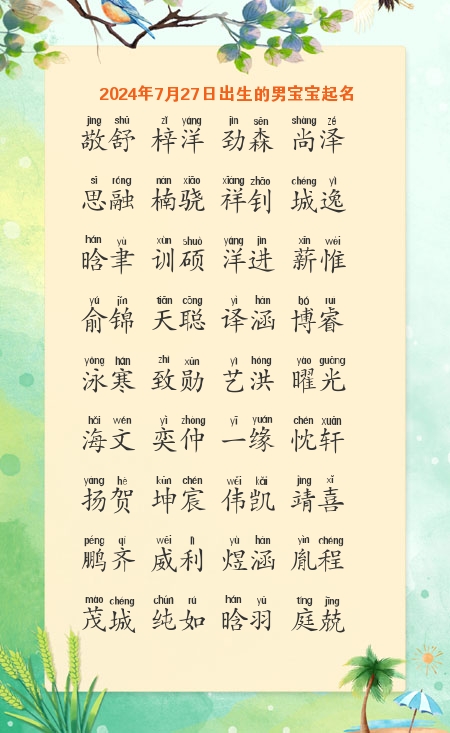 2024年7月27日出生的男宝宝起名
jìng shū zǐ yáng jìn sēn shàng zé
敬舒 梓洋 劲森 尚泽
sī róng nán xiāo xiáng zhāo chéng yì
思融 楠骁 祥钊 城逸
hán yù xùn shuò yáng jìn xīn wéi
晗聿 训硕 洋进 薪惟
yú jǐn tiān cōng yì hán bó ruì
俞锦 天聪 译涵 博睿
yǒng hán zhì xūn yì hóng yào guāng
泳寒 致勋 艺洪 曜光
hǎi wén yì zhòng yī yuán chén xuān
海文 奕仲 一缘 忱轩
yáng hè kūn chén wěi kǎi jìng xǐ
扬贺 坤宸 伟凯 靖喜
péng qí wēi lì yù hán yìn chéng
鹏齐 威利 煜涵 胤程
mào chéng chún rú hán yǔ tíng jīng
茂城 纯如 晗羽 庭兢